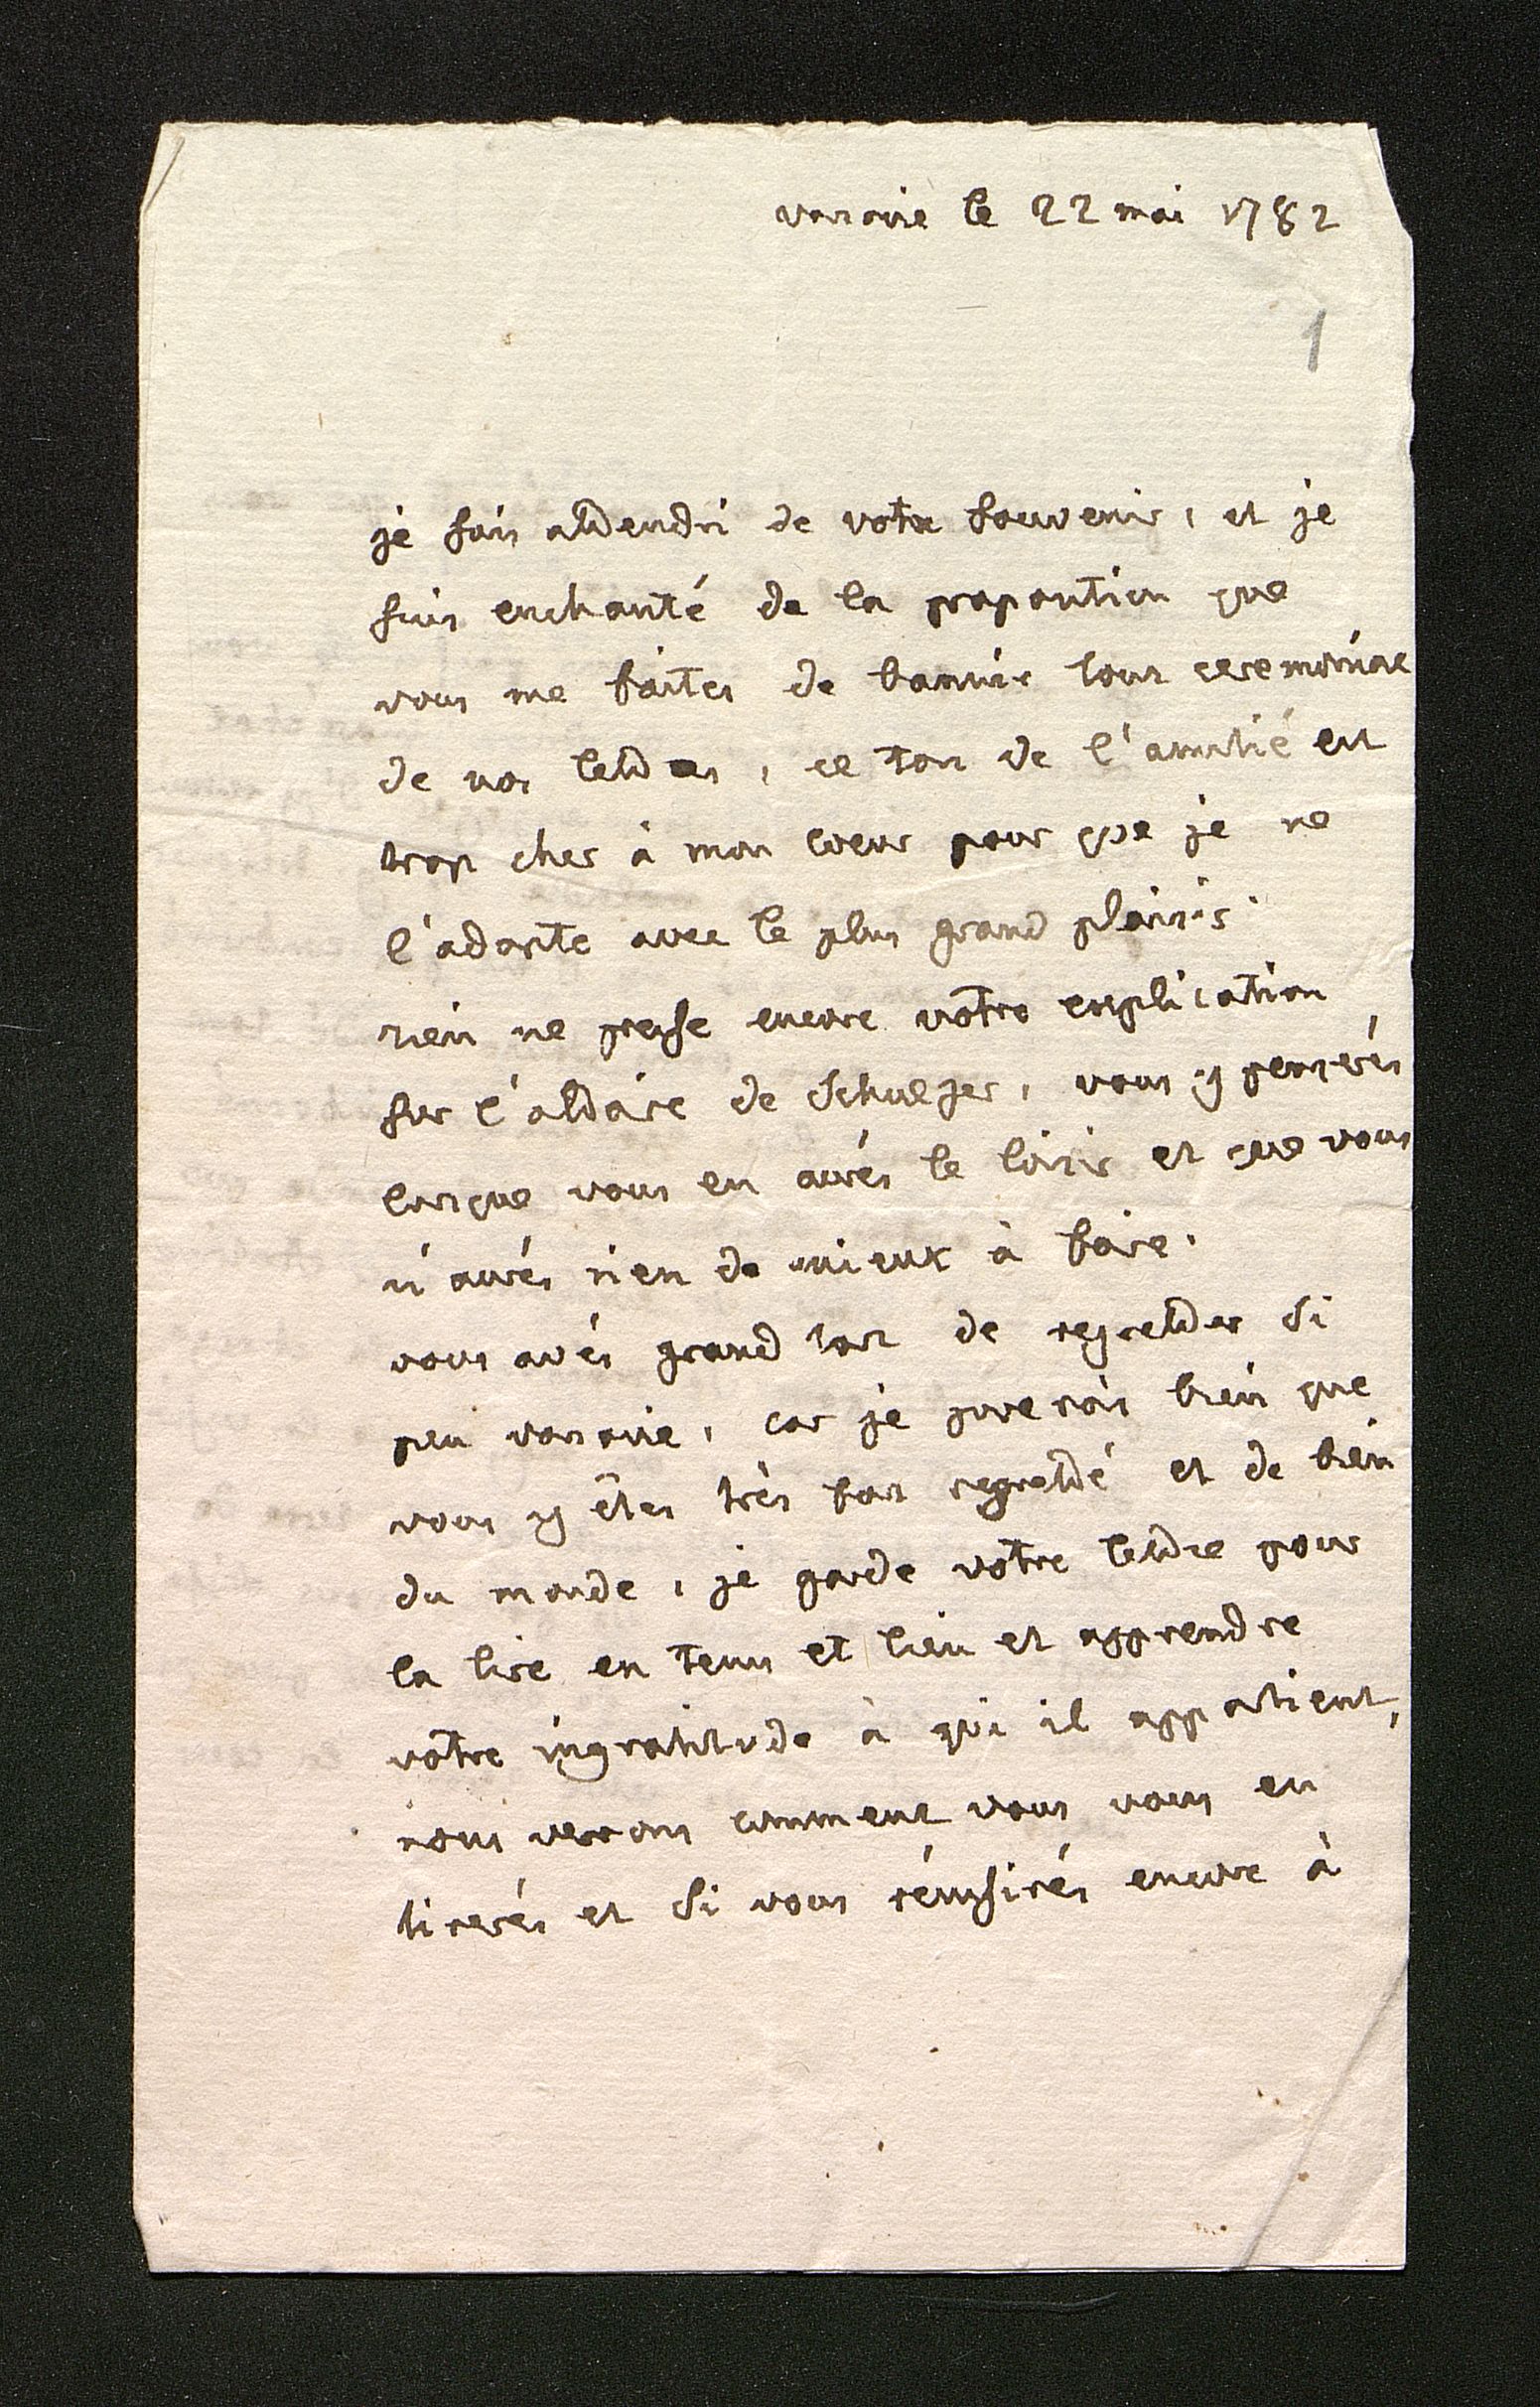 varsovie le 22 mai 1782
1
je suis attendri de votre souvenir, et je
suis enchanté de la proposition que
vous me faites de bannir tout ceremonial
de nos lettres, ce ton de l'amitié est
trop cher à mon coeur pour que je ne
l'adopte avec le plus grand plaisir.
rien ne presse encore votre explication
sur l'affaire de Schulzer, vous y penserés
lorsque vous en aurés le loisir et que vous
n'aurés rien de mieux à faire.
vous avés grand tort de regretter si
peu varsovie, car je jurerois bien que
vous y êtes très fort regretté et de bien
du monde, je garde votre lettre pour
la lire en tems et lieu et apprendre
votre ingratitude à qui il appartient,
nous verrons comment vous vous en
tirerés et si vous réussirés encore à